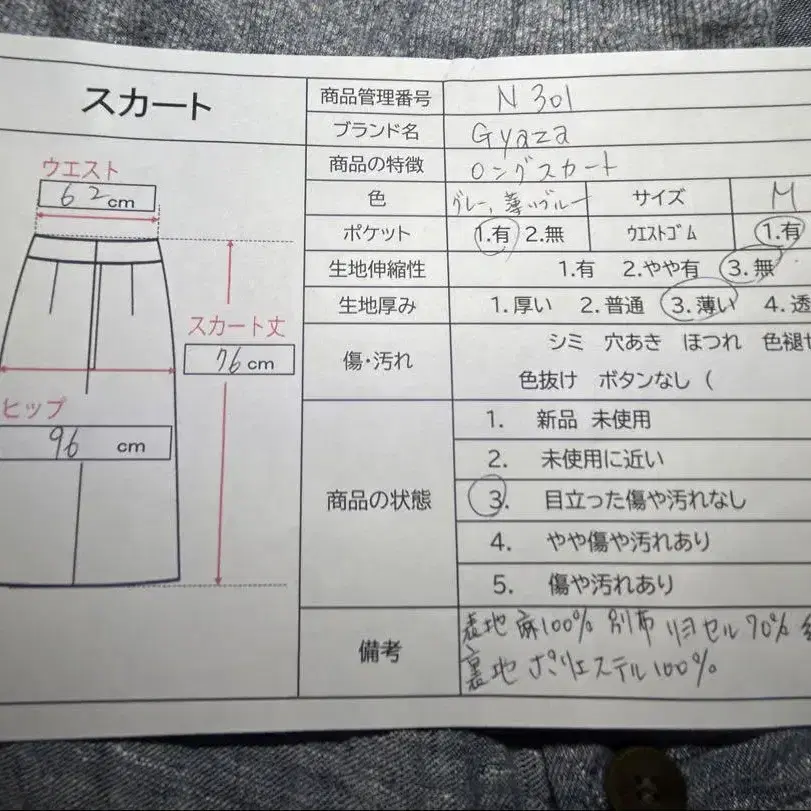 スカート
ウエスト
62cm
スカート丈
76cm
ヒップ
96 cm
商品管理番号 N 301
ブランド名 Gyaza
商品の特徴 ロングスカート
色 グレー、薄いブルー サイズ M
ポケット 1.有 2.無 ウエストゴム 1.有
生地伸縮性 1.有 2.やや有 3.無
生地厚み 1.厚い 2.普通 3.薄い 4.透
傷・汚れ シミ 穴あき ほつれ 色褪せ
色抜け ボタンなし (
商品の状態
1. 新品 未使用
2. 未使用に近い
3. 目立った傷や汚れなし
4. やや傷や汚れあり
5. 傷や汚れあり
備考 表地 麻100% 別布 リヨセル70%
裏地 ポリエステル100%